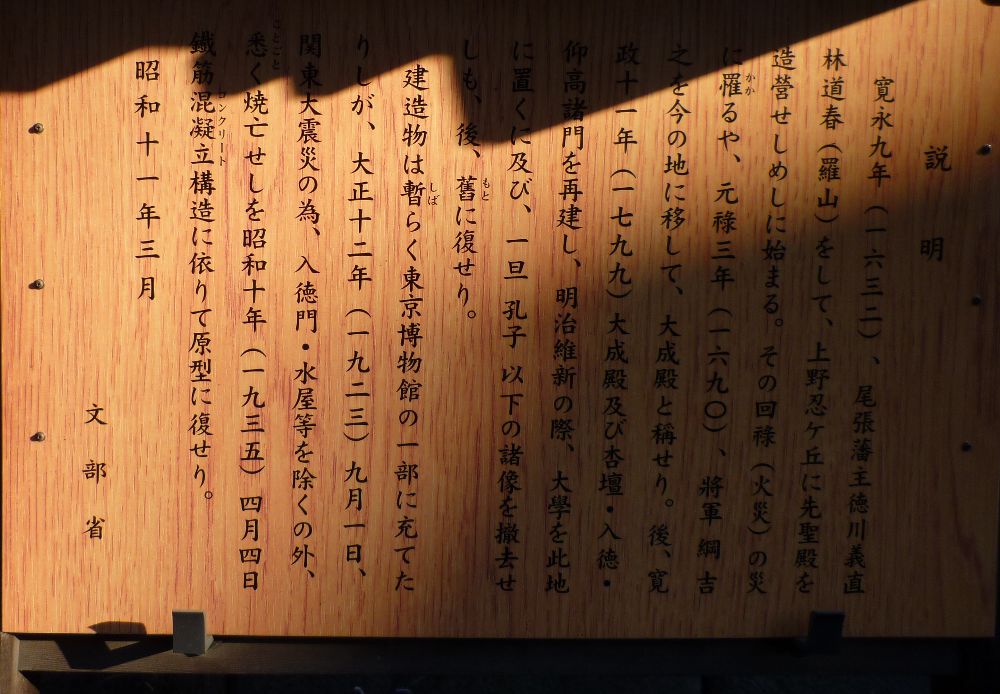 説明
寛永九年（一六三二）、尾張藩主徳川義直
林道春（羅山）をして、上野忍ケ丘に先聖殿を
造営せしめしに始まる。その回祿（火災）の災
に罹るや、元祿三年（一六九〇）、將軍綱吉
之を今の地に移して、大成殿と稱せり。後、寛
政十一年（一七九九）大成殿及び杏壇・入徳・
仰高諸門を再建し、明治維新の際、大學を此地
に置くに及び、一旦孔子以下の諸像を撤去せ
しも、後、舊に復せり。
建造物は暫らく東京博物館の一部に充てた
りしが、大正十二年（一九二三）九月一日、
関東大震災の為、入徳門・水屋等を除くの外、
悉く焼亡せしを昭和十年（一九三五）四月四日
鐵筋混凝立構造に依りて原型に復せり。
昭和十一年三月
文部省
かか
もと
しば
ことごと
コンクリート